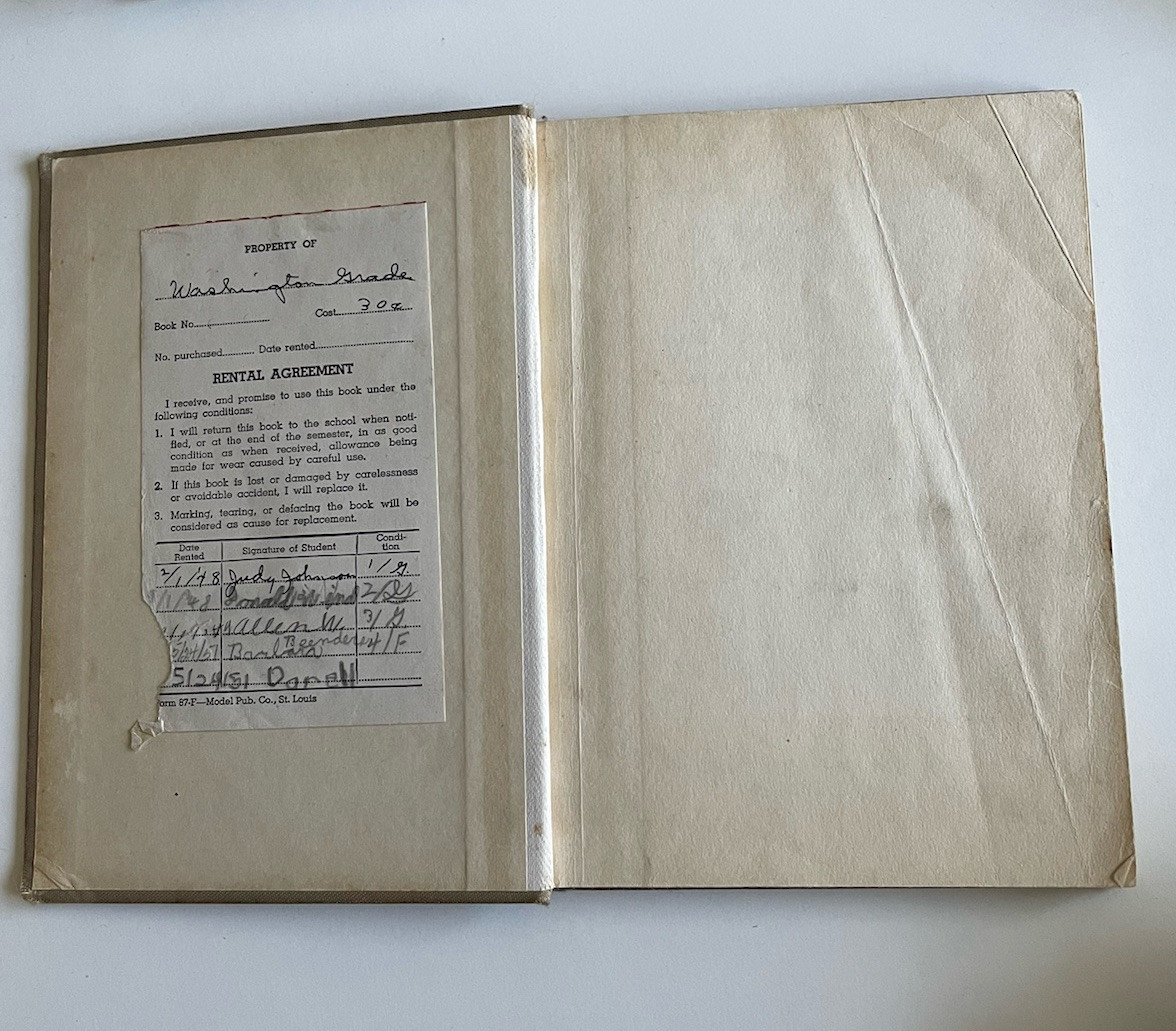 PROPERTY OF
Washington Grade
Book No. Cost 30¢
No. purchased Date rented
RENTAL AGREEMENT
I receive, and promise to use this book under the
following conditions:
1. I will return this book to the school when noti-
fied, or at the end of the semester, in as good
condition as when received, allowance being
made for wear caused by careful use.
2. If this book is lost or damaged by carelessness
or avoidable accident, I will replace it.
3. Marking, tearing, or defacing the book will be
considered as cause for replacement.
Date Rented Signature of Student Condi-tion
2/1/48 Judy Johnson 1/G.
Donald 2/
Allen W. 3/G
Barbara 4/F
5/24/51
orm 87-F—Model Pub. Co., St. Louis